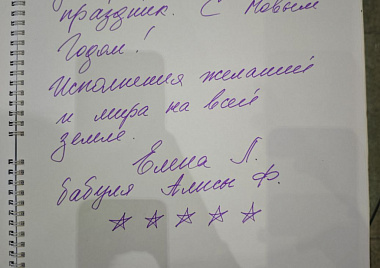 праздник. С Новым
Годом!
Исполнения желаний
и мира на всей
земле.
Елена Л.
бабуля Алисы Ф.